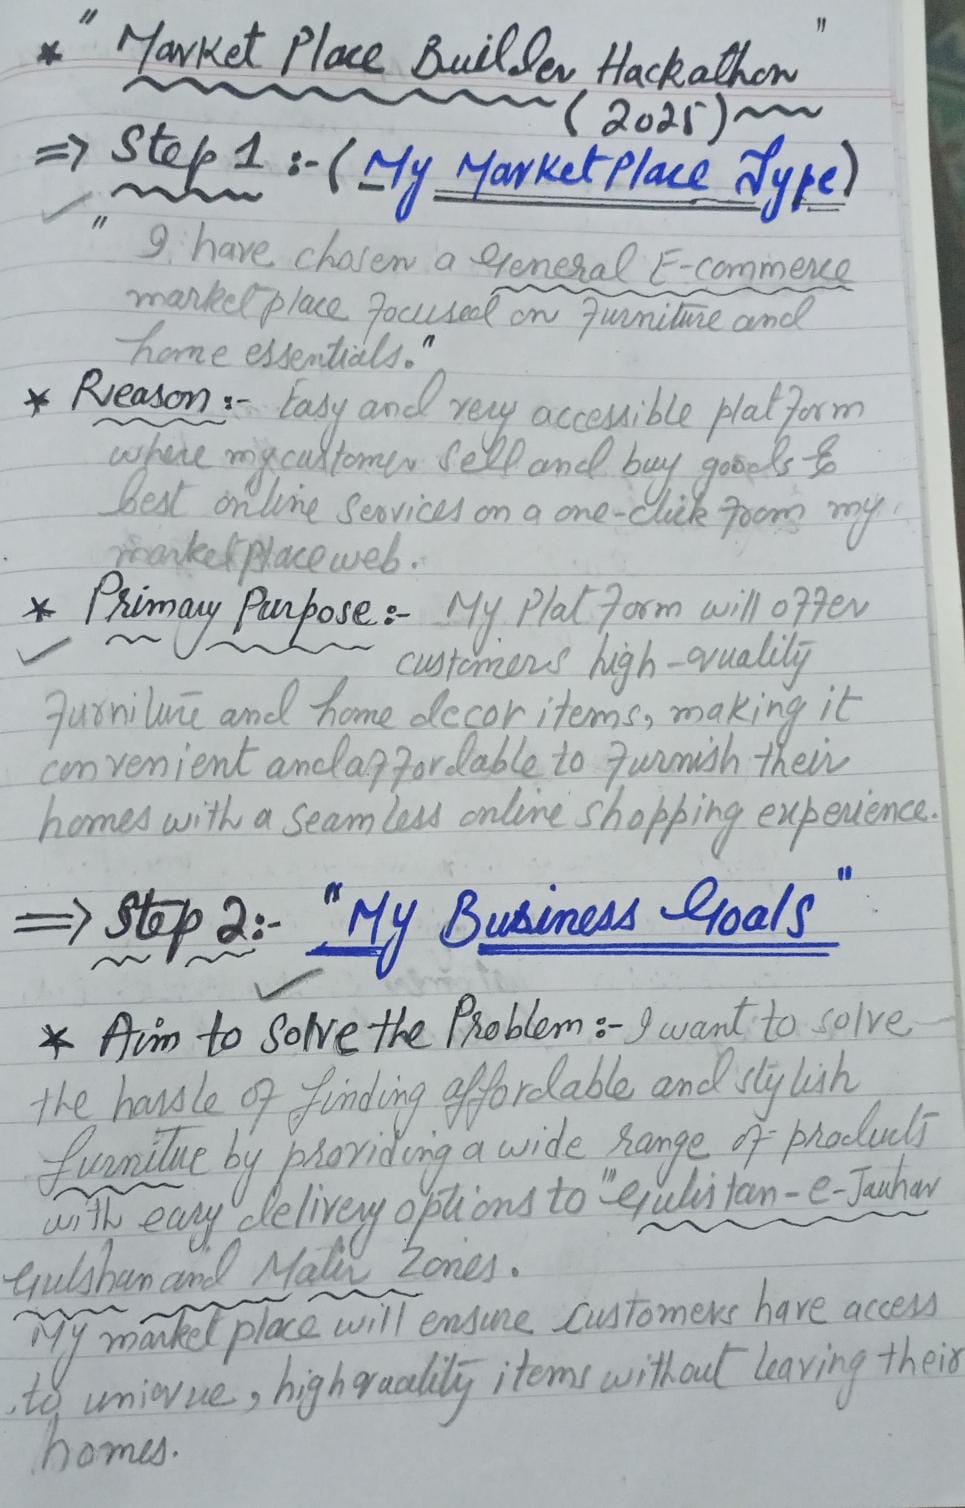 * "Market Place Builder Hackathon"
(2025)
=> Step 1 :- (My MarketPlace Type)
"I have chosen a General E-commerce
marketplace focused on furniture and
home essentials."
* Reason :- Easy and very accessible platform
where my customer sell and buy goods &
best online services on a one-click from my
marketplace web.
* Primary Purpose :- My Platform will offer
customers high-quality
furniture and home decor items, making it
convenient and affordable to furnish their
homes with a seamless online shopping experience.
=> Step 2 :- "My Business Goals"
* Aim to Solve the Problem :- I want to solve
the hassle of finding affordable and stylish
furnitue by providing a wide range of products
with easy delivery options to "Gulistan-e-Jauhar
Gulshan and Malir Zones.
My market place will ensure customers have access
to uniqvue, high quality items without leaving their
homes.